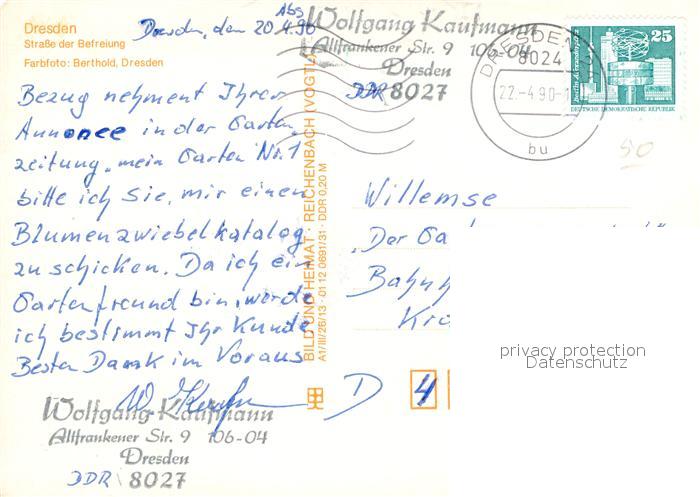 Dresden
Straße der Befreiung
Farbfoto: Berthold, Dresden
Dresden, den 20.4.90
Abs
Wolfgang Kaufmann
Altfrankener Str. 9 106-04
Dresden
DDR 8027
DRESDEN
8024
22.-4.90-1
bu
25
Berlin, Alexanderplatz
DEUTSCHE DEMOKRATISCHE REPUBLIK
90
Bezug nehment Ihrer
Annonce in der Garten
zeitung „mein Garten Nr. 1
bitte ich Sie, mir einen
Blumenzwiebelkatalog
zu schicken. Da ich ein
Gartenfreund bin, werde
ich bestimmt Ihr Kunde
Besten Dank im Voraus
W. Kaufmann
Wolfgang Kaufmann
Altfrankener Str. 9 106-04
Dresden
DDR 8027
BILD UND HEIMAT · REICHENBACH (VOGTL)
A1/III/26/13 · 01 12 0691/31 · DDR 0,20 M
Willemse
„Der Ga
Bahnh
Kro
D 4
privacy protection
Datenschutz